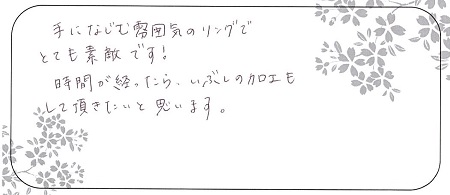 手になじむ雰囲気のリングで
とても素敵です!
時間が経ったら、いぶしの加工も
して頂きたいと思います。